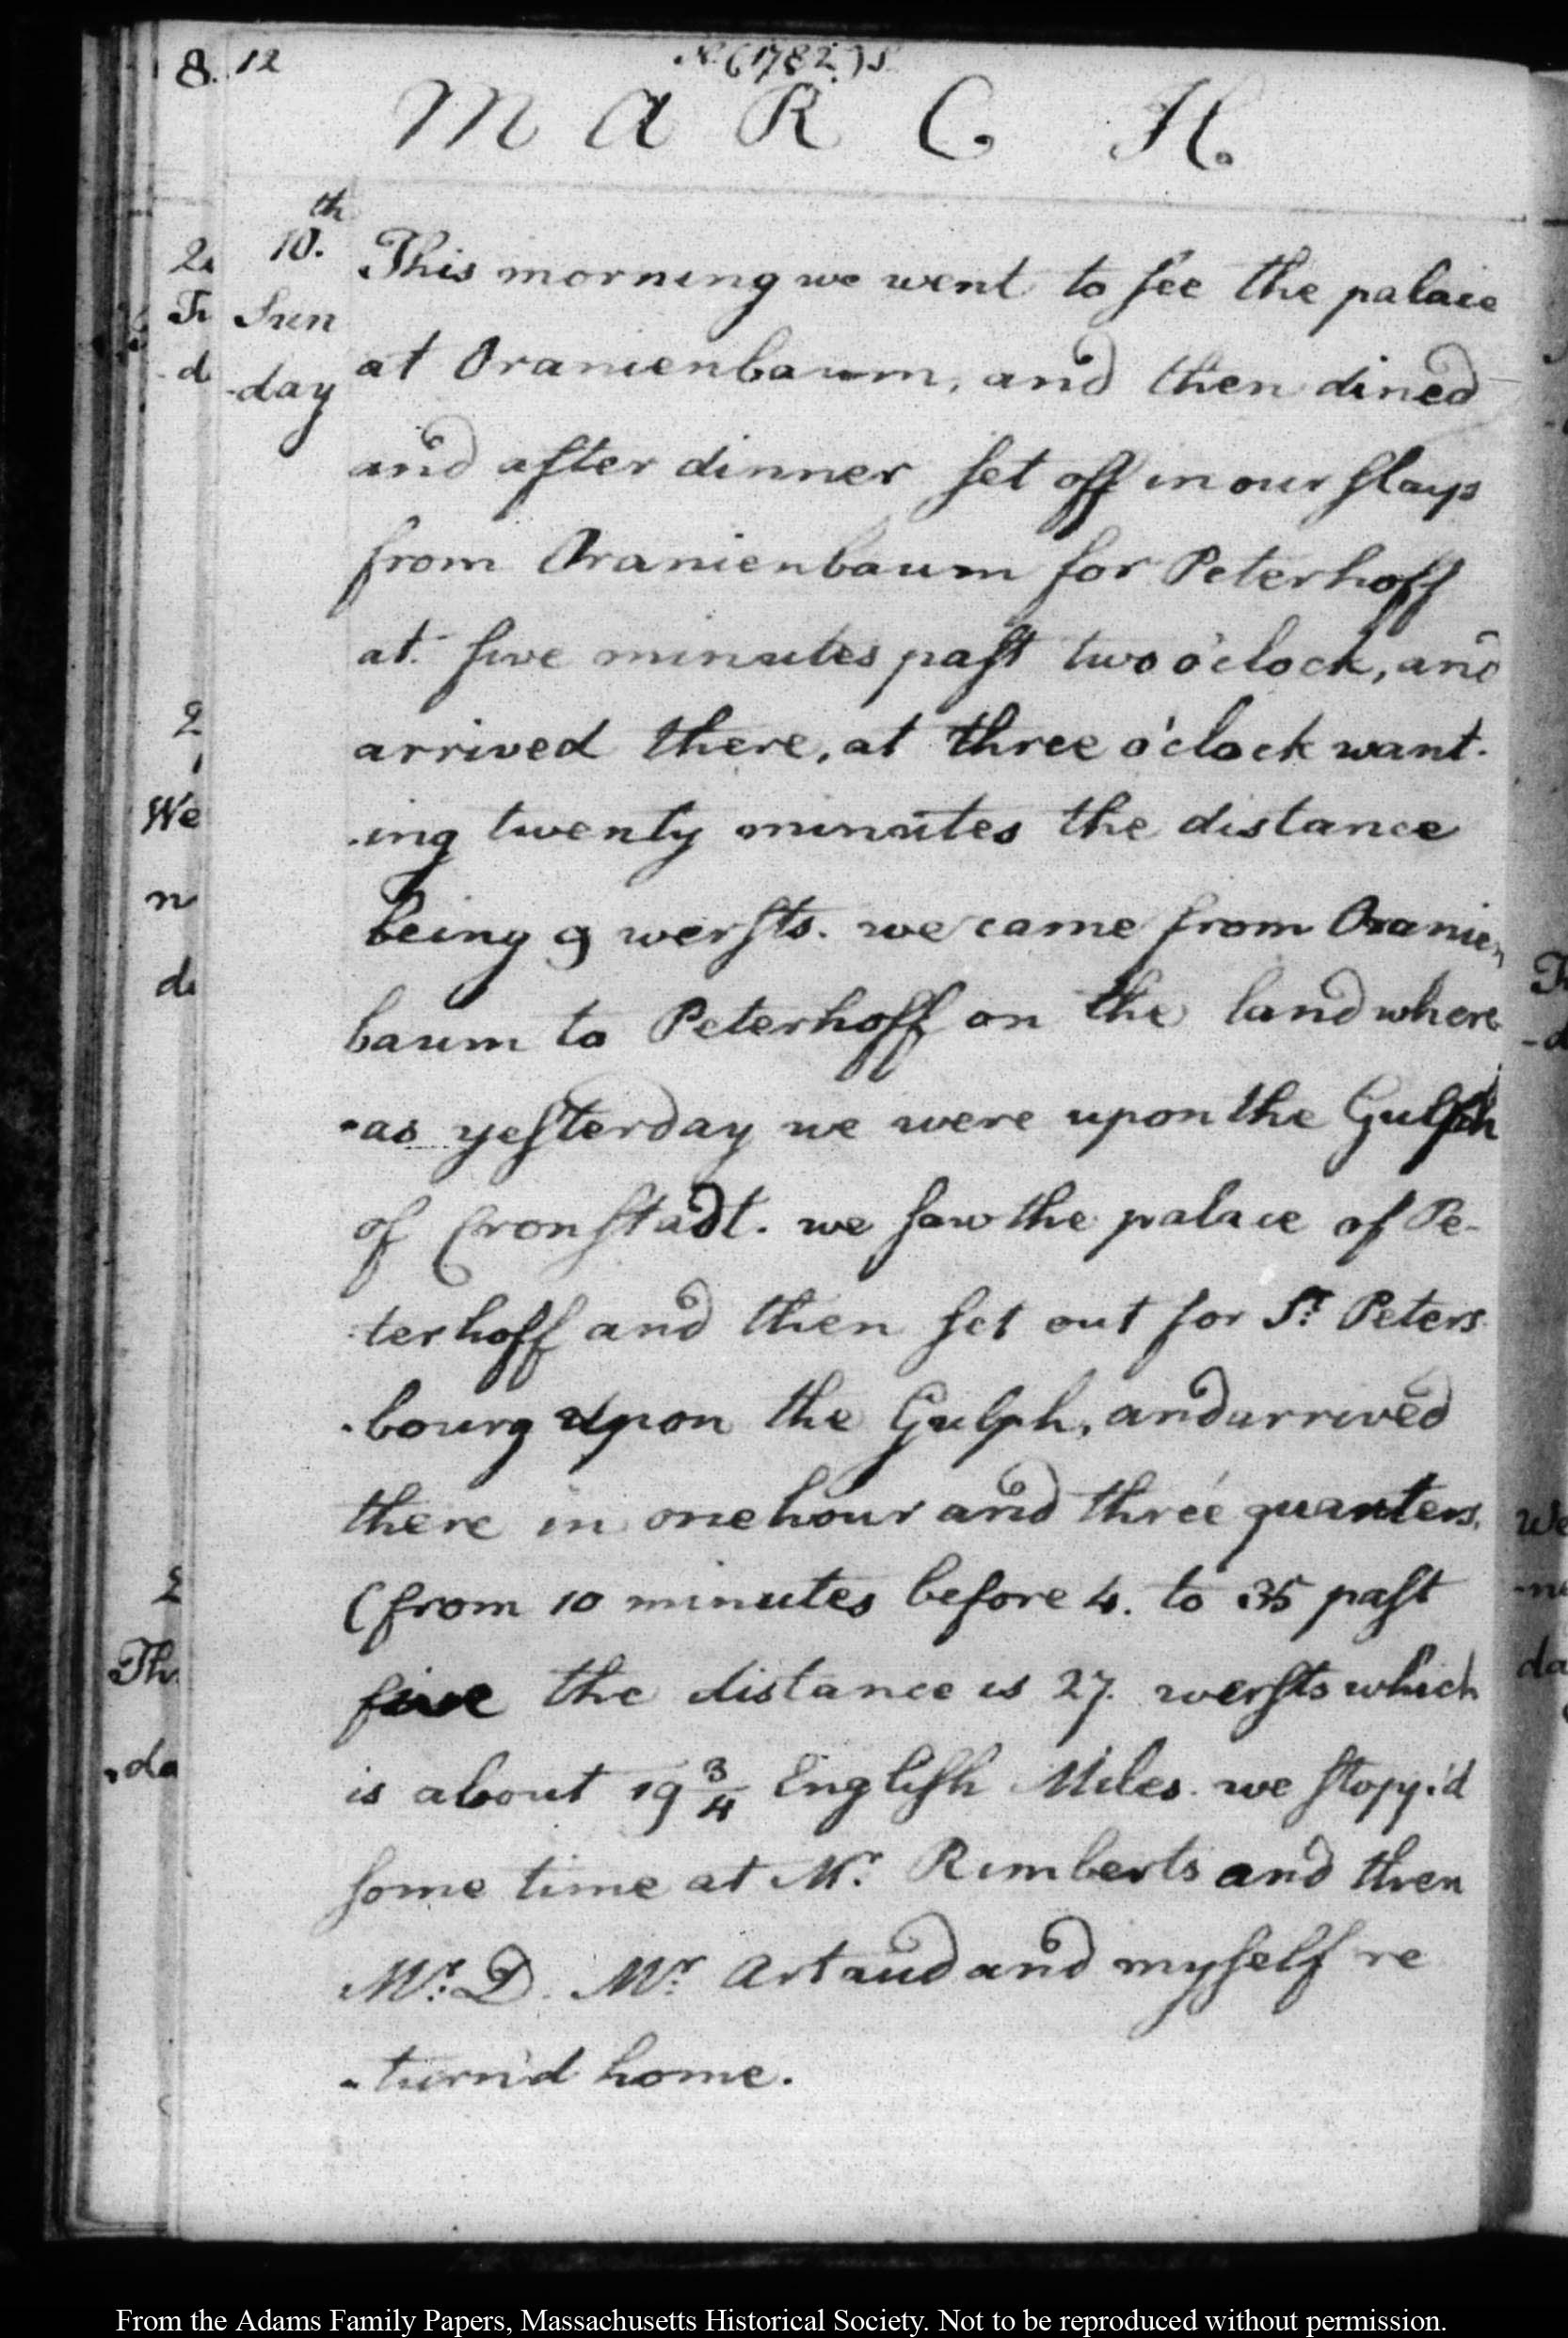 8. 12
(1782)
MARCH.
10.th This morning we went to see the palace
Sun at Oranienbaum, and then dined
-day and after dinner set off in our slays
from Oranienbaum for Peterhoff
at five minutes past two o'clock, and
arrived there, at three o'clock want-
-ing twenty minutes the distance
being 9 wersts. we came from Oranien
baum to Peterhoff on the land where
-as yesterday we were upon the Gulph
of Cronstadt. we saw the palace of Pe-
-terhoff and then set out for St. Peters
-bourg upon the Gulph, and arrived
there in one hour and three quarters.
(from 10 minutes before 4. to 35 past
five the distance is 27. wersts which
is about 19 3/4 English Miles. we stopp'd
some time at Mr. Rimberts and then
Mr. D. Mr. Artaud and myself re
-turn'd home.
From the Adams Family Papers, Massachusetts Historical Society. Not to be reproduced without permission.